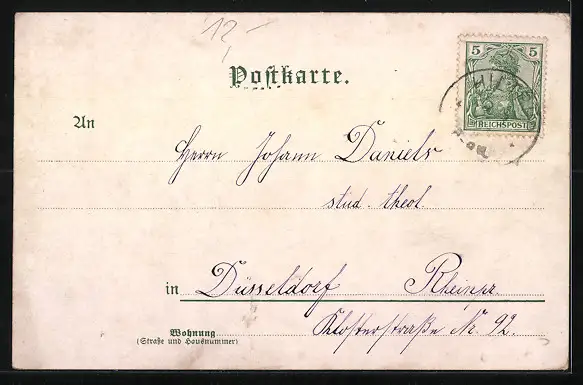 12,-
Postkarte.
5 5
REICHSPOST
An
Herrn Johann Daniels
stud. theol.
in Düsseldorf Rheinpr.
Wohnung
(Straße und Hausnummer)
Klosterstraße Nr. 92.